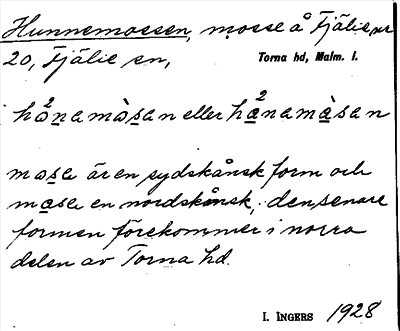 Hunnemossen, mosse å Fjälie nr
20, Fjälie sn, Torna hd, Malm. l.
hånamòsan eller hånamàsan
mose är en sydskånsk form och
mase en nordskånsk; den senare
formen förekommer i norra
delen av Torna hd.
I. INGERS 1928